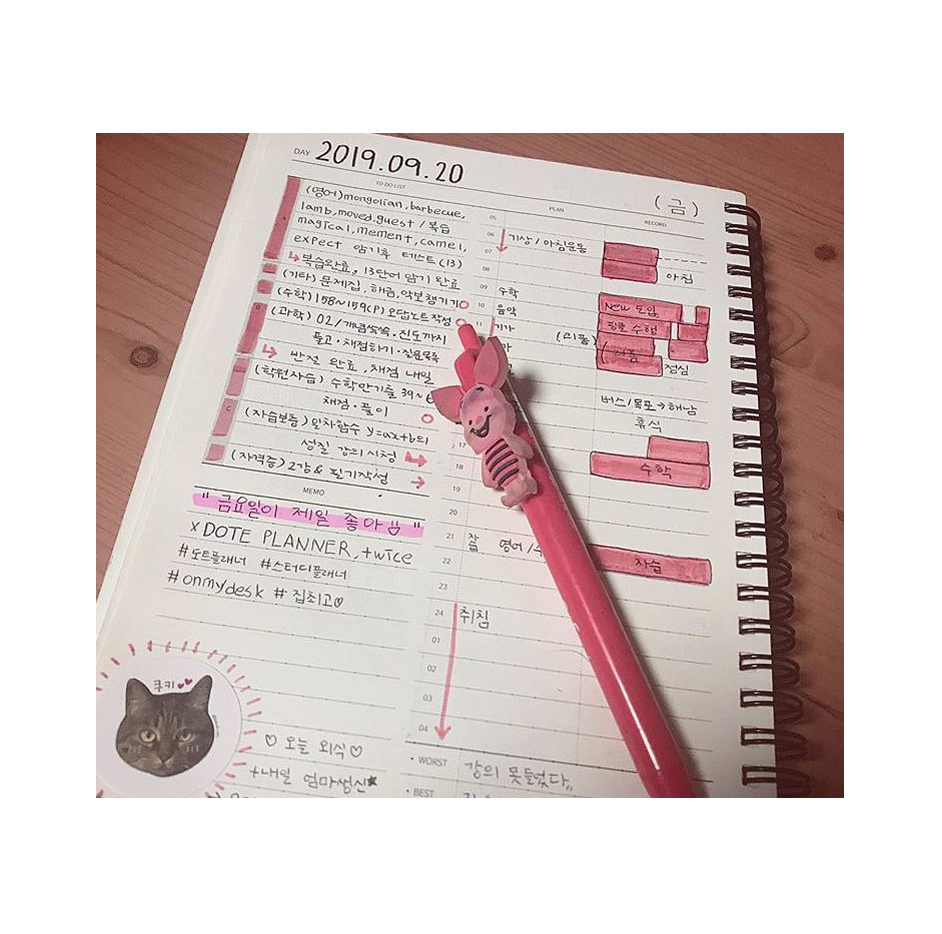 DAY 2019.09.20
(금)
TO DO LIST
(영어)mongolian, barbecue,
lamb, moved, guest / 복습
magical, mement, camel,
expect 암기후 테스트(13)
↳복습완료, 13단어 암기 완료
(기타) 문제집, 해금, 악보챙기기
(수학) 158~159(P) 오답노트작성
(과학) 02/개념쏙쏙·진도까지
풀고·채점하기·질문목록
↳ 반절 완료, 채점 내일
(학원자습) 수학만기출 39~6
채점·풀이
(자습보충) 일차함수 y=ax+b의
성질 강의 시청
(자격증) 2강 & 필기작성
MEMO
"금요일이 제일 좋아!! "
× DOTE PLANNER, +wice
#도트플래너 #스터디플래너
#onmydesk #집최고♡
쿠키
♡ 오늘 외식♡
+내일 엄마생신★
PLAN
RECORD
05
06
07 기상/아침운동
08 아침
09 수학
10 음악 New 도입
11 기가
(괴롭)
점심
버스/목포→해남
휴식
17
18 수학
19
20
21 자습 영어/수
22 자습
23
24 취침
01
02
03
04
• WORST 강의 못들었다,,
• BEST